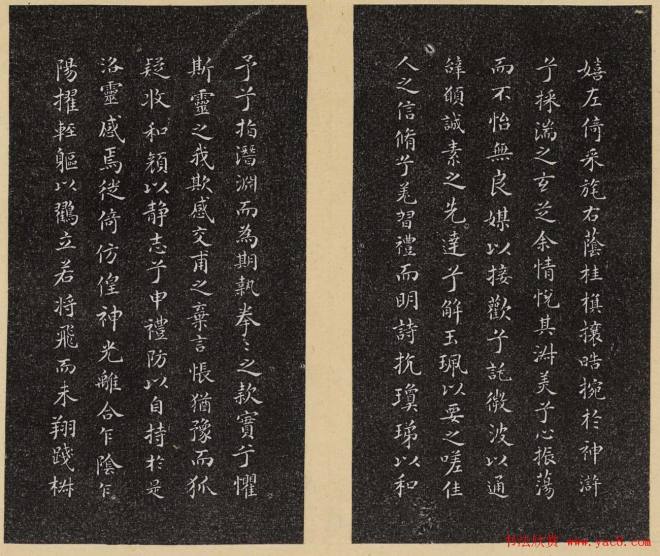 嬉左倚采旄右蔭桂旗攘皓捥於神滸
兮採湍之玄芝余情悅其淑美兮心振蕩
而不怡無良媒以接歡兮託微波以通
辭願誠素之先達兮解玉珮以要之嗟佳
人之信脩兮羌習禮而明詩抗瓊珶以和
予兮指潛淵而為期執拳〻之款實兮懼
斯靈之我欺感交甫之棄言悵猶豫而狐
疑收和顏以静志兮申禮防以自持於是
洛靈感焉徙倚仿偟神光離合乍陰乍
陽擢輕軀以鶴立若將飛而未翔踐椒
书法欣赏 www.yac8.com